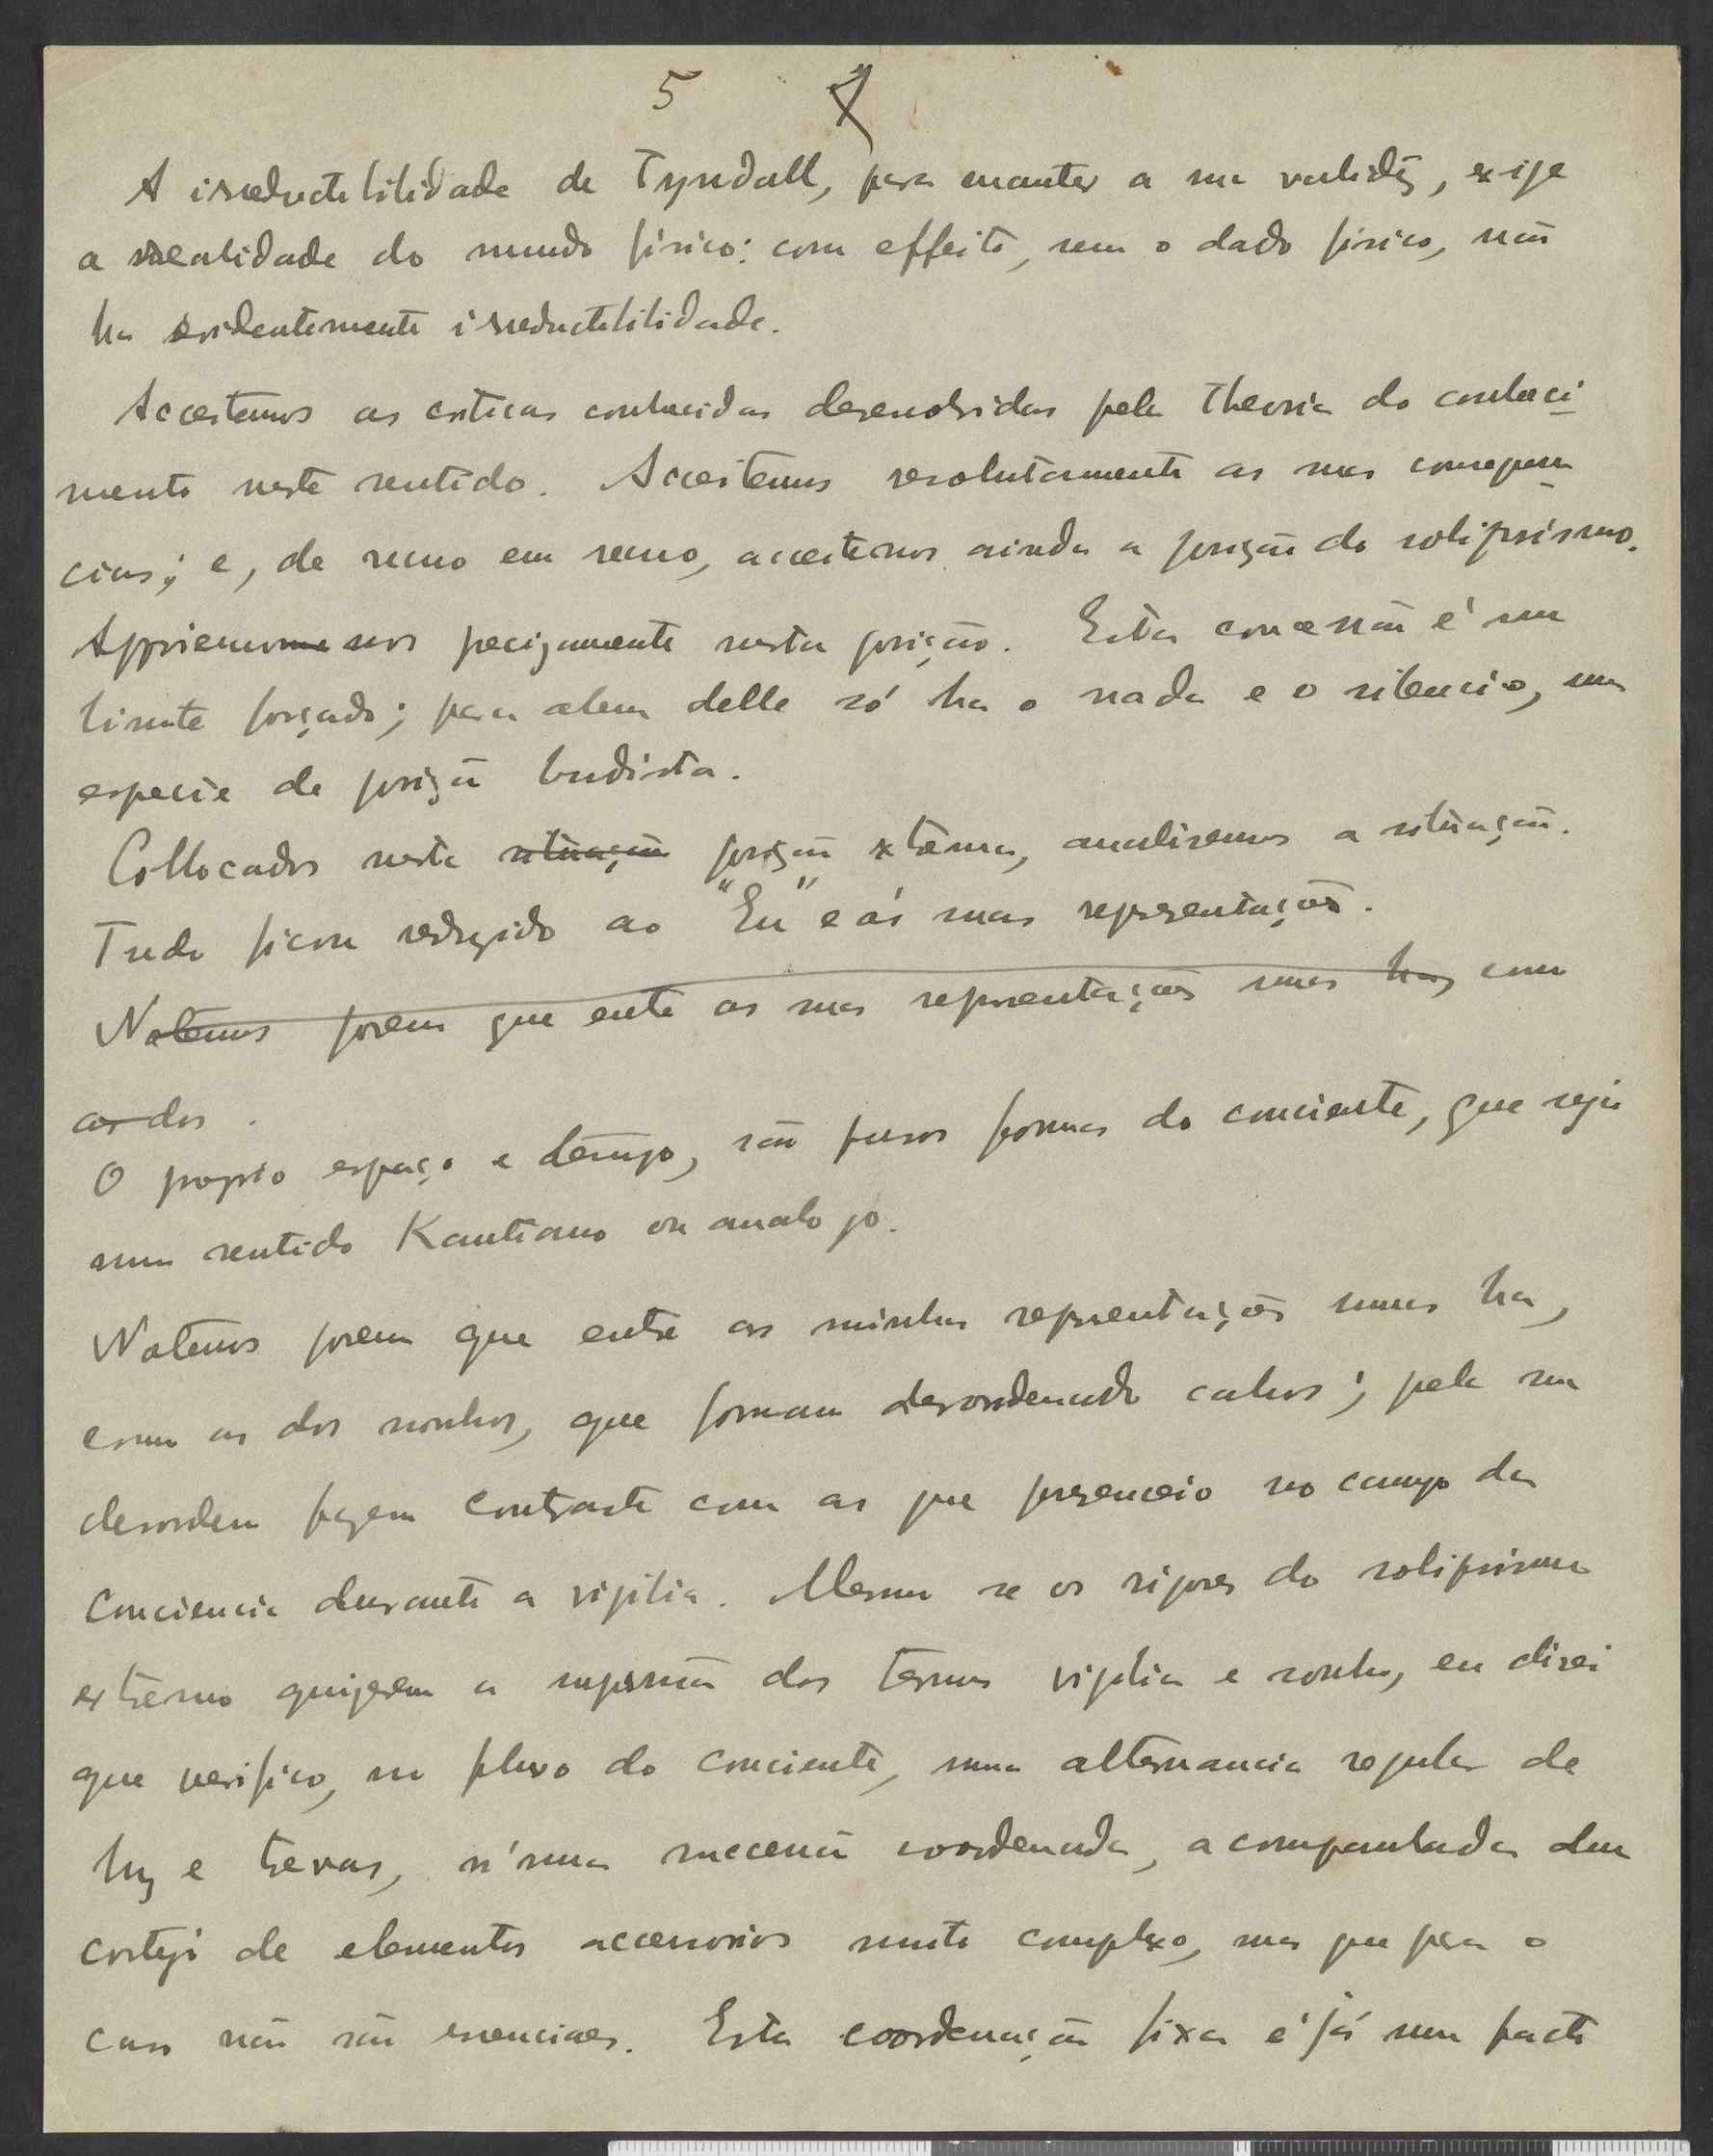 5
A irreductibilidade de Tyndall, para manter a sua validez, exije
a realidade do mundo fisico: com effeito, sem o dado fisico, não
ha evidentemente irreductibilidade.
Acceitemos as criticas conhecidas desenvolvidas pela theoria do conheci-
mento neste sentido. Acceitemos resolutamente as suas consequen-
cias; e, de recuo em recuo, acceitemos ainda a posição do solipsismo.
nos precizamente nesta posição. Esta concessão é um
limite forçado; para alem delle só ha o nada e o silencio, uma
especie de posição budista.
Collocados nesta situação posição extrema, analisemos a situação.
Tudo ficou reduzido ao "Eu" e ás suas representações.
Notemos porem que entre as suas representações umas ha, como
as dos.
O proprio espaço e tempo, são puras formas do conciente, que seja
num sentido Kantiano ou analojo.
Notemos porem que entre as minhas representações umas ha,
como as dos sonhos, que formam desordenado cahos; pela sua
desordem fazem contraste com as que presenceio no campo da
conciencia durante a vijilia. Mesmo se os rigores do solipsismo
extremo quizerem a supressão dos termos vijilia e sonho, eu direi
que verifico, no fluxo do conciente, uma alternancia regular de
luz e trevas, n'uma sucessão coordenada, acompanhada dum
cortejo de elementos accessorios muito complexo, mas que para o
caso não são essenciaes. Esta coordenação fixa é já um facto